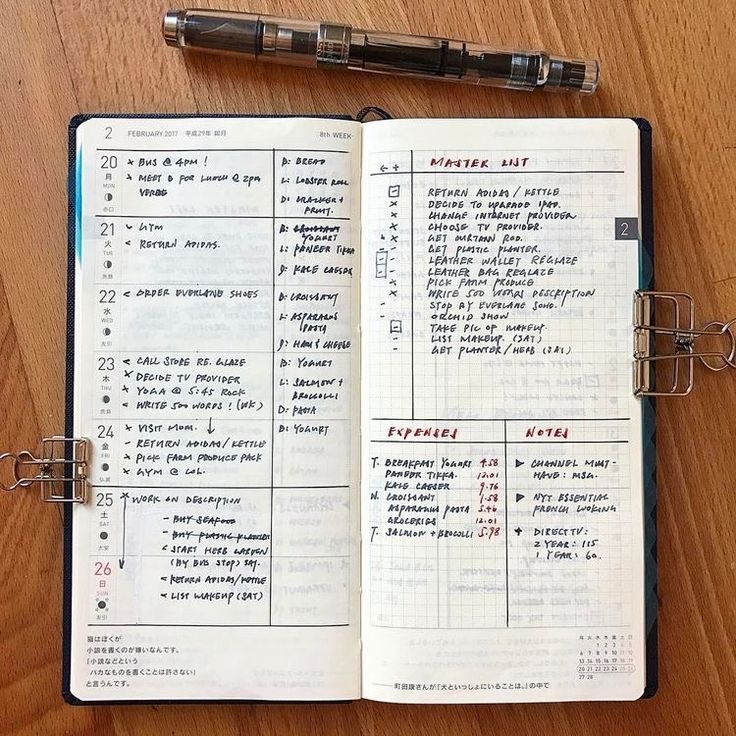 2 FEBRUARY 2017 平成29年 如月 8th WEEK
20 月 MON 赤口
× BUS @ 4PM !
× MEET D FOR LUNCH @ 2PM
B: BREAD
L: LOBSTER ROLL
D: CRACKER +
FRUIT.
21 火 TUE 先勝
× GYM
< RETURN ADIDAS.
B: CROISSANT
YOGURT
L: PANEER TIKKA
D: KALE CAESER
22 水 WED 友引
< ORDER EVERLANE SHOES
B: CROISSANT
L: ASPARAGUS
PASTA
D: HAM & CHEESE
23 木 THU 先負
< CALL STORE RE. GLAZE
× DECIDE TV PROVIDER
× YOGA @ 5:45 ROCK
< WRITE 500 WORDS ! (WK)
B: YOGURT
L: SALMON +
BROCCOLLI
D: PASTA
24 金 FRI 仏滅
× VISIT MOM. ↓
- RETURN ADIDAS/KETTLE
× PICK FARM PRODUCE PACK
× GYM @ COL.
B: YOGURT
25 土 SAT 大安
× WORK ON DESCRIPTION
- BUY SEAFOOD
- BUY PLASTIC PLANTER
26 日 SUN
< START HERB GARDEN
(BY BUS STOP) SAT.
< RETURN ADIDAS/KETTLE
< LIST MAKEUP (SAT)
猫はぼくが
小説を書くのが嫌いなんです。
「小説などという
バカなものを書くことは許さない」
と言うんです。
← + MASTER LIST
- RETURN ADIDAS / KETTLE
× DECIDE TO UPGRADE IPAD.
× CHANGE INTERNET PROVIDER
× CHOOSE TV PROVIDER.
× GET CURTAIN ROD.
- GET PLASTIC PLANTER.
- LEATHER WALLET REGLAZE
- LEATHER BAG REGLAZE
× PICK FARM PRODUCE
× WRITE 500 WORDS DESCRIPTION
- STOP BY EVERLANE SOHO.
- ORCHID SHOW
- TAKE PIC OF MAKEUP.
- LIST MAKEUP. (SAT)
- GET PLANTER / HERB (SAT)
2
EXPENSES
T. BREAKFAST YOGURT 4.58
PANEER TIKKA. 12.01
KALE CAESER 9.76
W. CROISSANT 1.58
ASPARAGUS PASTA 5.46
GROCERIES 12.01
T. SALMON + BROCOLLI 5.98
NOTES
▶ CHANNEL MUST-
HAVE: MSG.
▶ NYT ESSENTIAL
FRENCH COOKING
+ DIRECT TV:
2 YEAR: 115
1 YEAR: 60.
月 火 水 木 金 土 日
1 2 3 4 5
6 7 8 9 10 11 12
13 14 15 16 17 18 19
20 21 22 23 24 25 26
27 28
町田康さんが『犬といっしょにいることは。』の中で